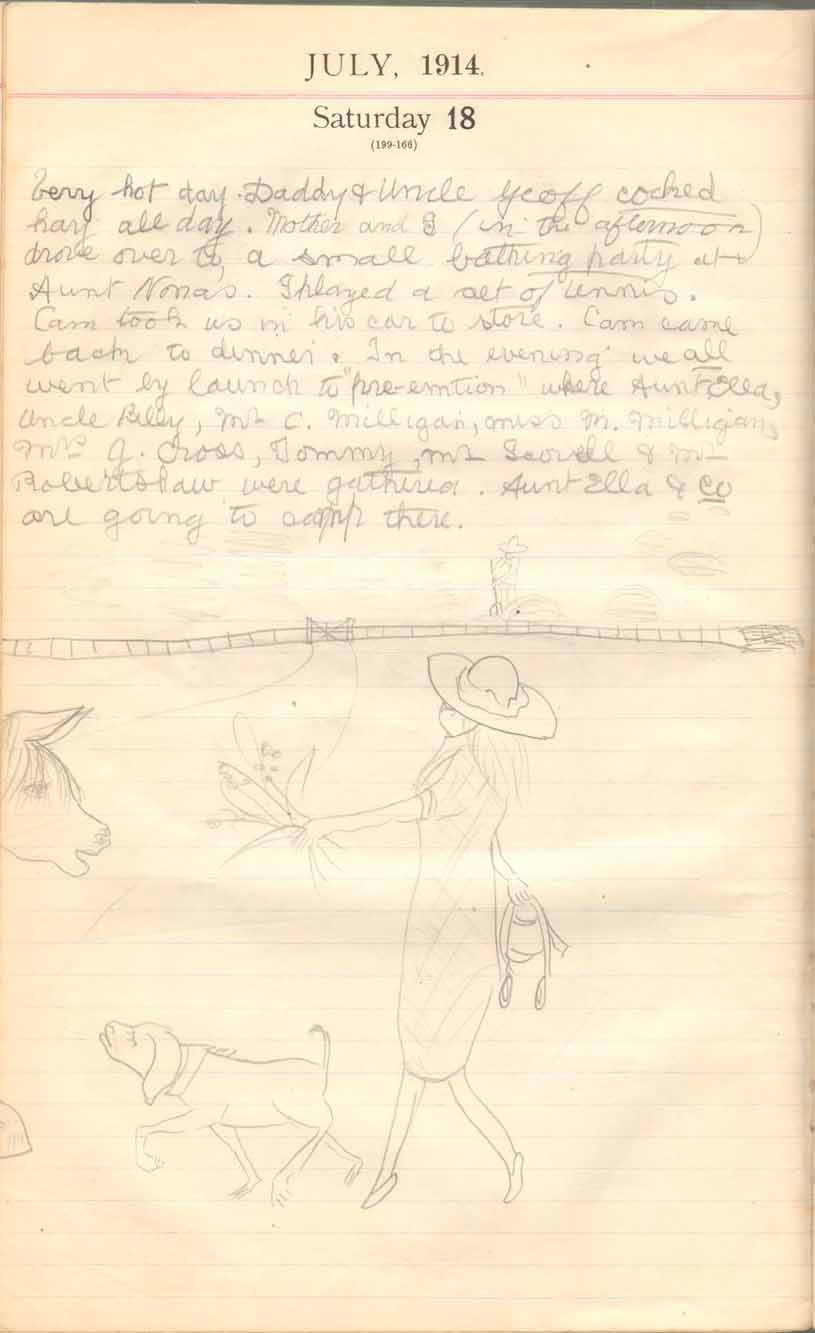 JULY, 1914.
Saturday 18
(199-166)
Very hot day. Daddy & Uncle Geoff cocked
hay all day. Mother and I (in the afternoon)
drove over to a small bathing party at
Aunt Nona's. I played a set of tennis.
Cam took us in his car to store. Cam came
back to dinner. In the evening we all
went by launch to "pre-emtion" where Aunt Ella,
Uncle Riley, Mr C. Milligan, miss M. Milligan,
Mrs G. Cross, Tommy, Mr Scovell & Mr
Robertshaw were gathered. Aunt Ella & Co
are going to camp there.